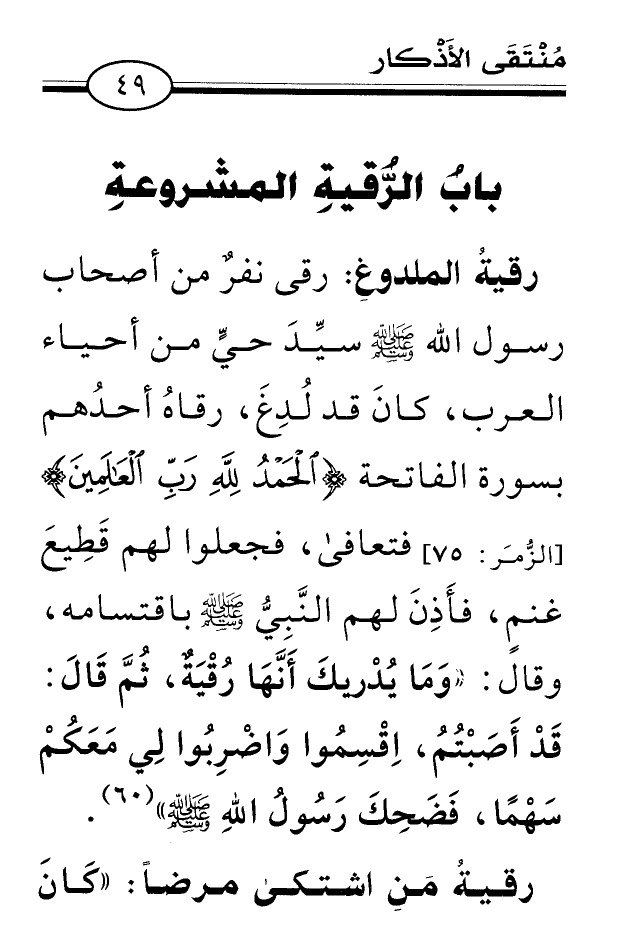 مُنْتَقَى الأَذْكار
٤٩
بابُ الرُّقيةِ المشروعةِ
رقيةُ الملدوغِ: رقى نفرٌ من أصحاب
رسول الله ﷺ سيِّدَ حيٍّ من أحياء
العرب، كانَ قد لُدِغَ، رقاهُ أحدُهم
بسورة الفاتحة ﴿ٱلْحَمْدُ لِلَّهِ رَبِّ ٱلْعَٰلَمِينَ﴾
[الزُّمَر: ٧٥] فتعافىٰ، فجعلوا لهم قَطِيعَ
غنمٍ، فأَذِنَ لهم النَّبِيُّ ﷺ باقتسامه،
وقال: «وَمَا يُدْرِيكَ أَنَّهَا رُقْيَةٌ، ثُمَّ قَالَ:
قَدْ أَصَبْتُمُ، اِقْسِمُوا وَاضْرِبُوا لِي مَعَكُمْ
سَهْمًا، فَضَحِكَ رَسُولُ اللهِ ﷺ»(٦٠).
رقيةُ مَنِ اشتكىٰ مرضاً: «كَانَ